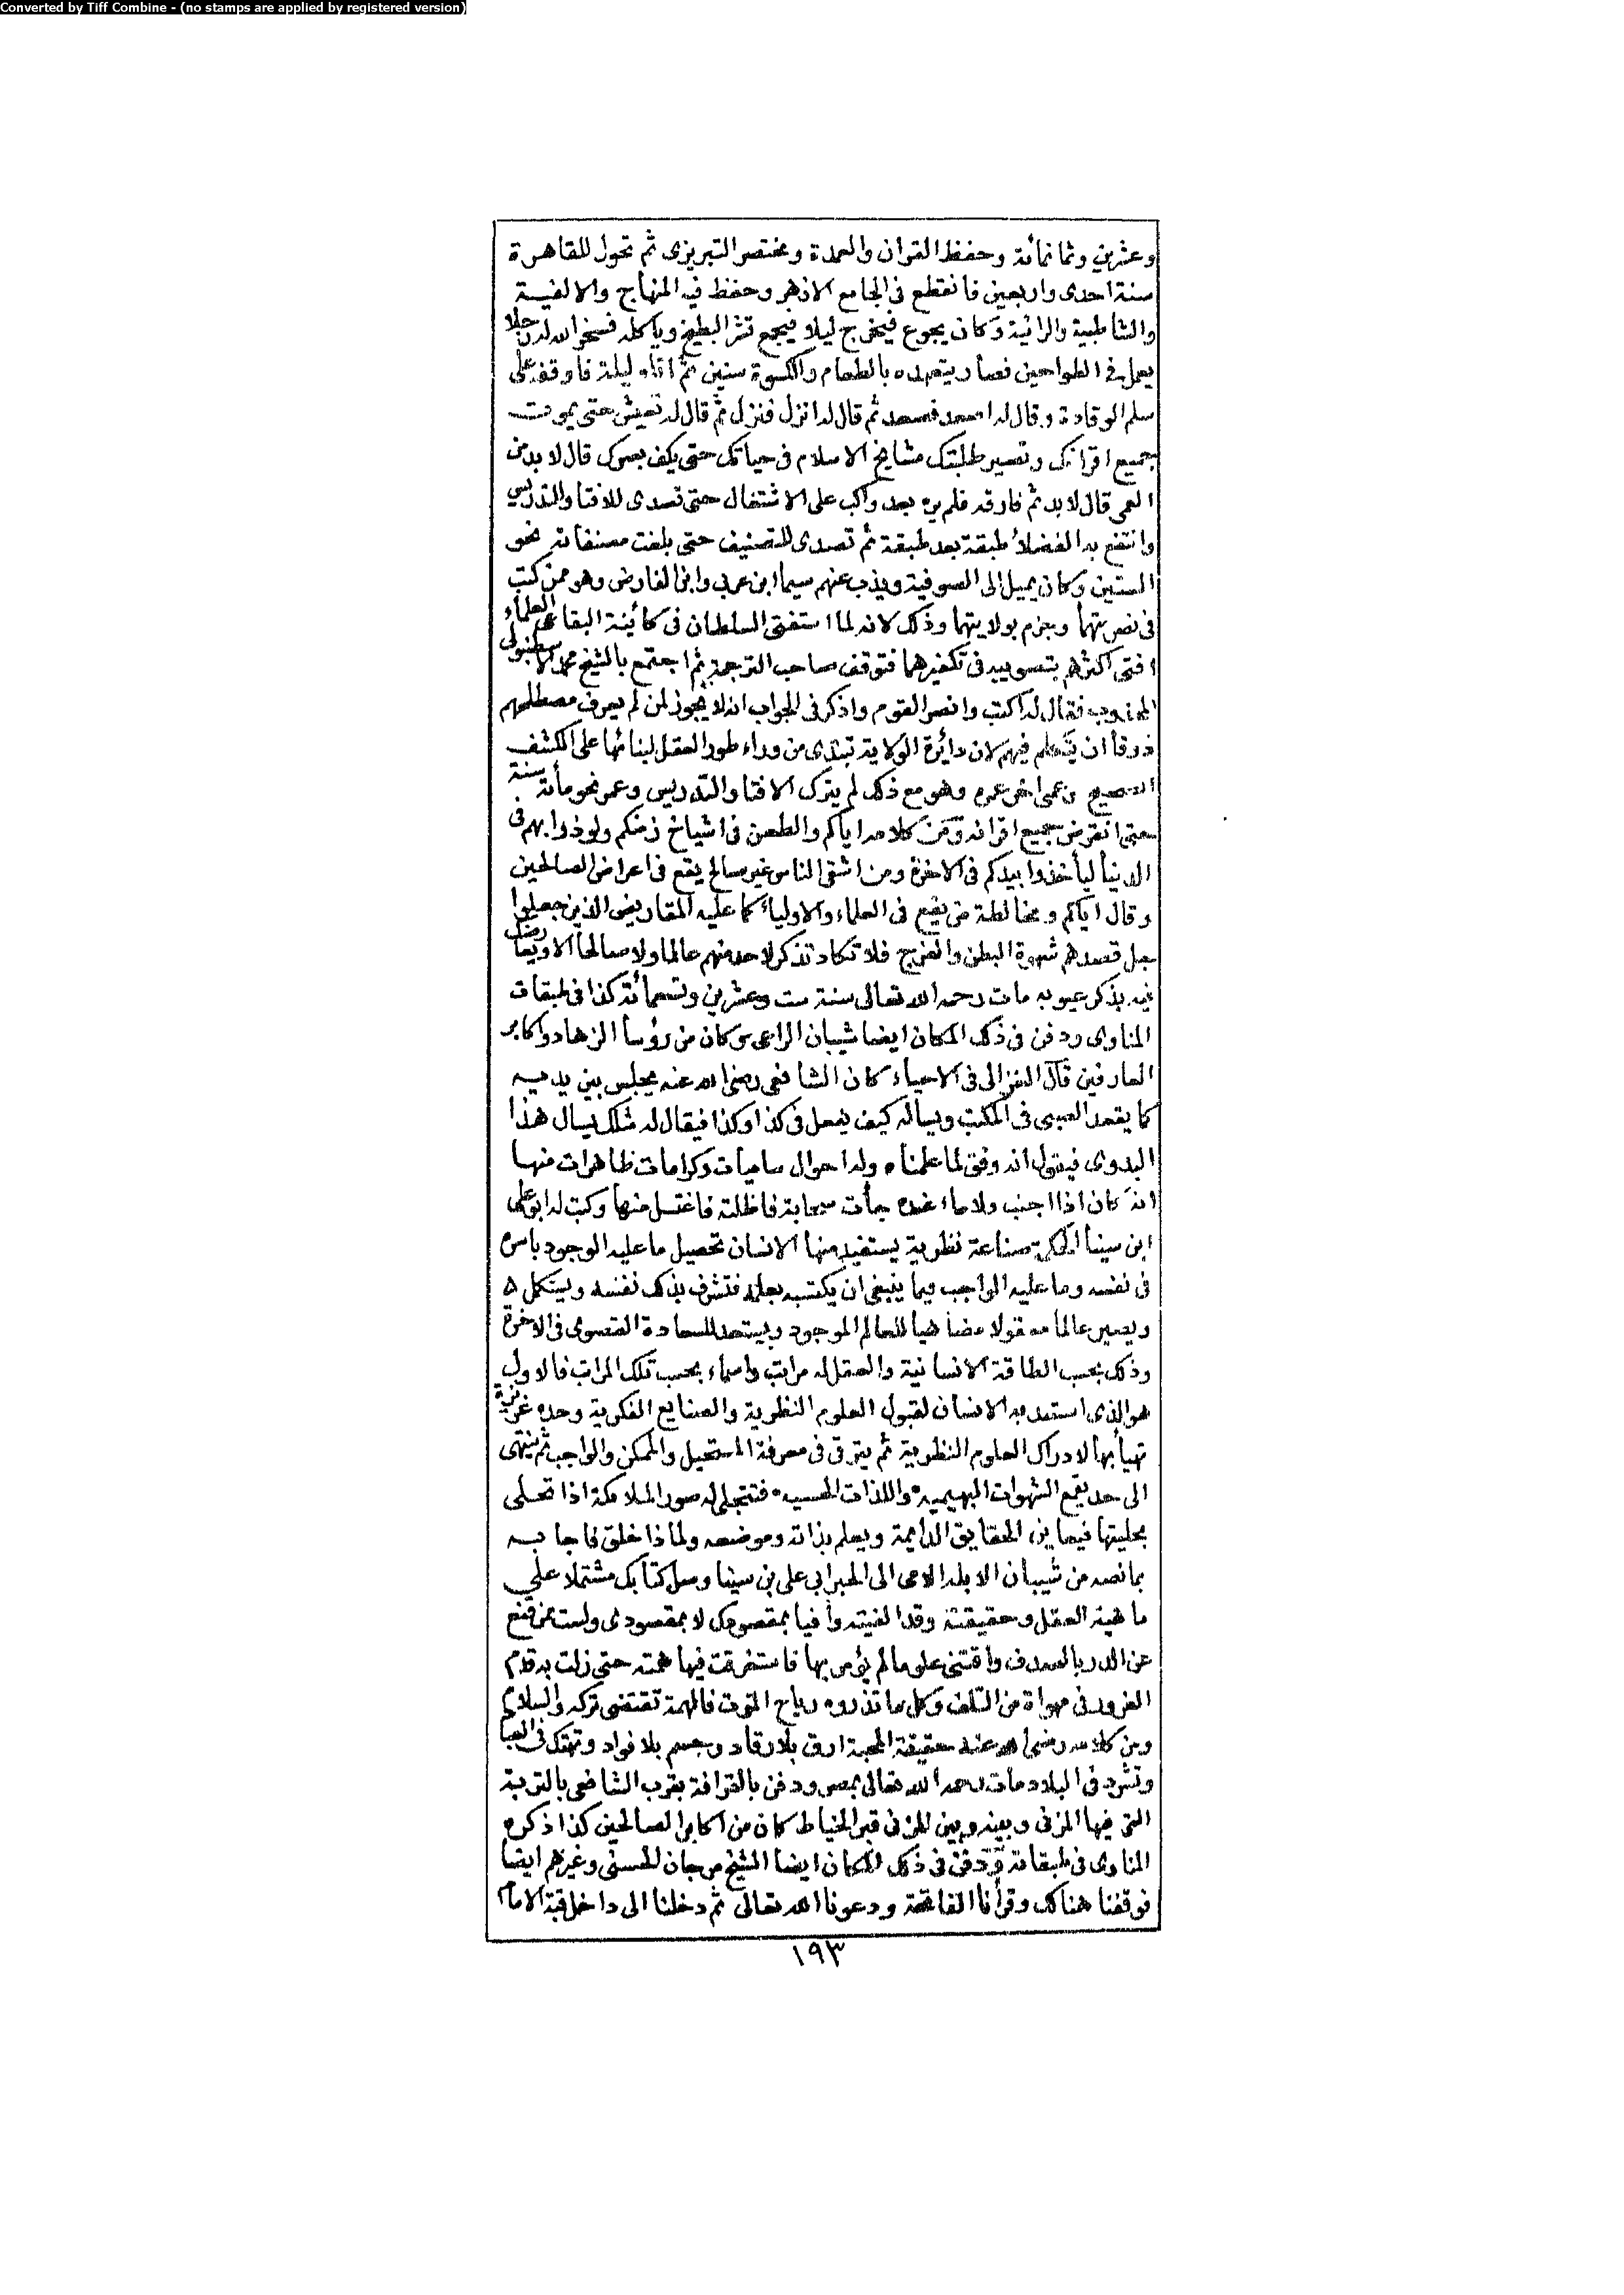 Converted by Tiff Combine - (no stamps are applied by registered version)
وعشرين وثمانمائة وحفظ القران والعمدة ومختصر التبريزى ثم تحول للقاهرة
سنة احدى واربعين فانقطع فى الجامع الازهر وحفظ فيه المنهاج والالفية
والشاطبية والرائية وكان يجوع فيخرج ليلا فيجمع قشر البطيخ وياكله فسخر الله له رجلا
يعمل فى الطواحين فصار يتعهده بالطعام والكسوة سنين ثم اتاه ليلة فاوقفه على
سلم الوقادة وقال له اصعد فصعد ثم قال له انزل فنزل ثم قال له تعيش حتى يموت
جميع اقرانك وتصير طلبتك مشايخ الاسلام فى حياتك حتى يكف بصرك قال لا بد من
العمى قال لا بد ثم فارقه فلم يره بعد واكب على الاشتغال حتى تصدى للافتا والتدريس
وانتفع به الفضلاء طبقة بعد طبقة ثم تصدى للتصنيف حتى بلغت مصنفاته نحو
الستين وكان يميل الى الصوفية ويذب عنهم سيما ابن عربى وابن الفارض وهو ممن كتب
فى نصرتهما وجزم بولايتهما وذلك لانه لما استفتى السلطان فى كائنة البقاعى العلماء
افتى اكثرهم بتصويبه فى تكفيرهما فتوقف صاحب الترجمة ثم اجتمع بالشيخ محمد الاسطنبولى
المجذوب فقال له اكتب وانصر القوم واذكر فى الجواب انه لا يجوز لمن لم يعرف مصطلحهم
ذوقا ان يتكلم فيهم لان دائرة الولاية تبتدى من وراء طور العقل لبنائها على الكشف
الصحيح وعمى اخر عمره وهو مع ذلك لم يترك الافتا والتدريس وعمر نحو مأئة سنة
حتى انقرض جميع اقرانه ومن كلامه اياكم والطعن فى اشياخ زمنكم ولوذوا بهم فى
الدنيا ليأخذوا بيدكم فى الاخرة ومن اشقى الناس غير صالح يقع فى اعراض الصالحين
وقال اياكم ومخالطة من يقع فى العلماء والاولياء كما عليه المقاريض الذين جعلوا
جل قصدهم شهوة البطن والفرج فلا تكاد تذكر لاحد منهم عالما ولا صالحا الا ويعارضك
فيه بذكر عيوبه مات رحمه الله تعالى سنة ست وعشرين وتسعمائة كذا فى طبقات
المناوى ودفن فى ذلك المكان ايضا شيبان الراعى كان من رؤسا الزهاد واكابر
العارفين قال الغزالى فى الاحياء كان الشافعى رضى الله عنه يجلس بين يديه
كما يقعد الصبى فى المكتب ويساله كيف يفعل فى كذا وكذا فيقال له مثلك يسال هذا
البدوى فيقول انه وفق لما علمناه وله احوال ساميات وكرامات ظاهرات منها
انه كان اذا اجنب ولا ماء عنده جأت سحابة فاظلته فاغتسل منها وكتب له ابو على
ابن سينا الحكمة صناعة نظرية يستفيد منها الانسان تحصيل ما عليه الوجود باسره
فى نفسه وما عليه الواجب فيما ينبغى ان يكتسبه بعلمه فتشرف بذلك نفسه ويستكمل
ويصير عالما معقولا مضاهيا للعالم الموجود ويستعد للسعادة القصوى فى الاخرة
وذلك بحسب الطاقة الانسانية والعقل له مراتب واسماء بحسب تلك المراتب فالاول
هو الذى استعد به الانسان لقبول العلوم النظرية والصنايع الفكرية وحده غريزة
تهيأ بها لادراك العلوم النظرية ثم يترقى فى معرفة المستحيل والممكن والواجب ثم ينتهى
الى حد يقمع الشهوات البهيمية واللذات الحسية فتتجلى له صور الملائكة اذا تحلى
بحليتها فيعاين الحقايق الدايمة ويعلم بذاته وموضعه ولماذا خلق فاجابه
بما نصه من شيبان الابله الامى الى الحبر ابى على بن سينا وصل كتابك مشتملا على
ماهية العقل وحقيقته وقد الفيته وافيا بمقصودك لا بمقصودى ولست ممن قنع
عن الدر بالصدف واقتنى علوما لم يؤمر بها فاستغرقت فيها همته حتى زلت به قدم
الغرور فى مهواة من التلف وكل ما تذروه رياح الموت فالهمة تقتضى تركه والسلام
ومن كلامه رضى الله عنه حقيقة المحبة ارق بلا رقاد وجسم بلا فواد وتهتك فى العبا
وتشرد فى البلاد مات رحمه الله تعالى بمصر ودفن بالقرافة بقرب الشافعى بالتربة
التى فيها المزنى وبينه وبين المزنى قبر الخياط كان من اكابر الصالحين كذا ذكره
المناوى فى طبقاته ودفن فى ذلك المكان ايضا الشيخ مرجان الحسنى وغيرهم ايضا
فوقفنا هناك وقرأنا الفاتحة ودعونا الله تعالى ثم دخلنا الى داخل قبة الامام
١٩٣